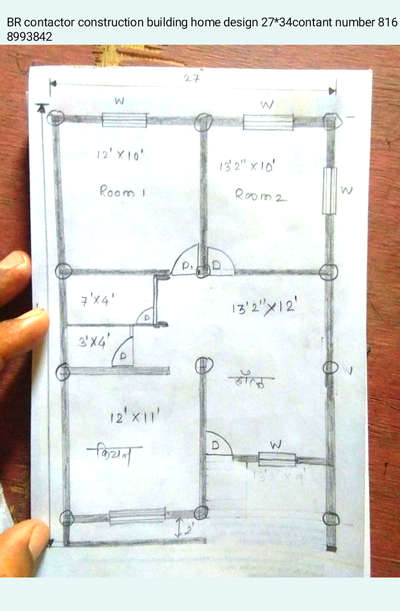 BR contactor construction building home design 27*34contant number 816
8993842
27
W
W
12'X10'
Room 1
13'2"X10'
Room 2
W
D1
D
7'X4'
D
13'2"X12'
3'X4'
D
हॉल
12'X11'
किचन
D
W
2'